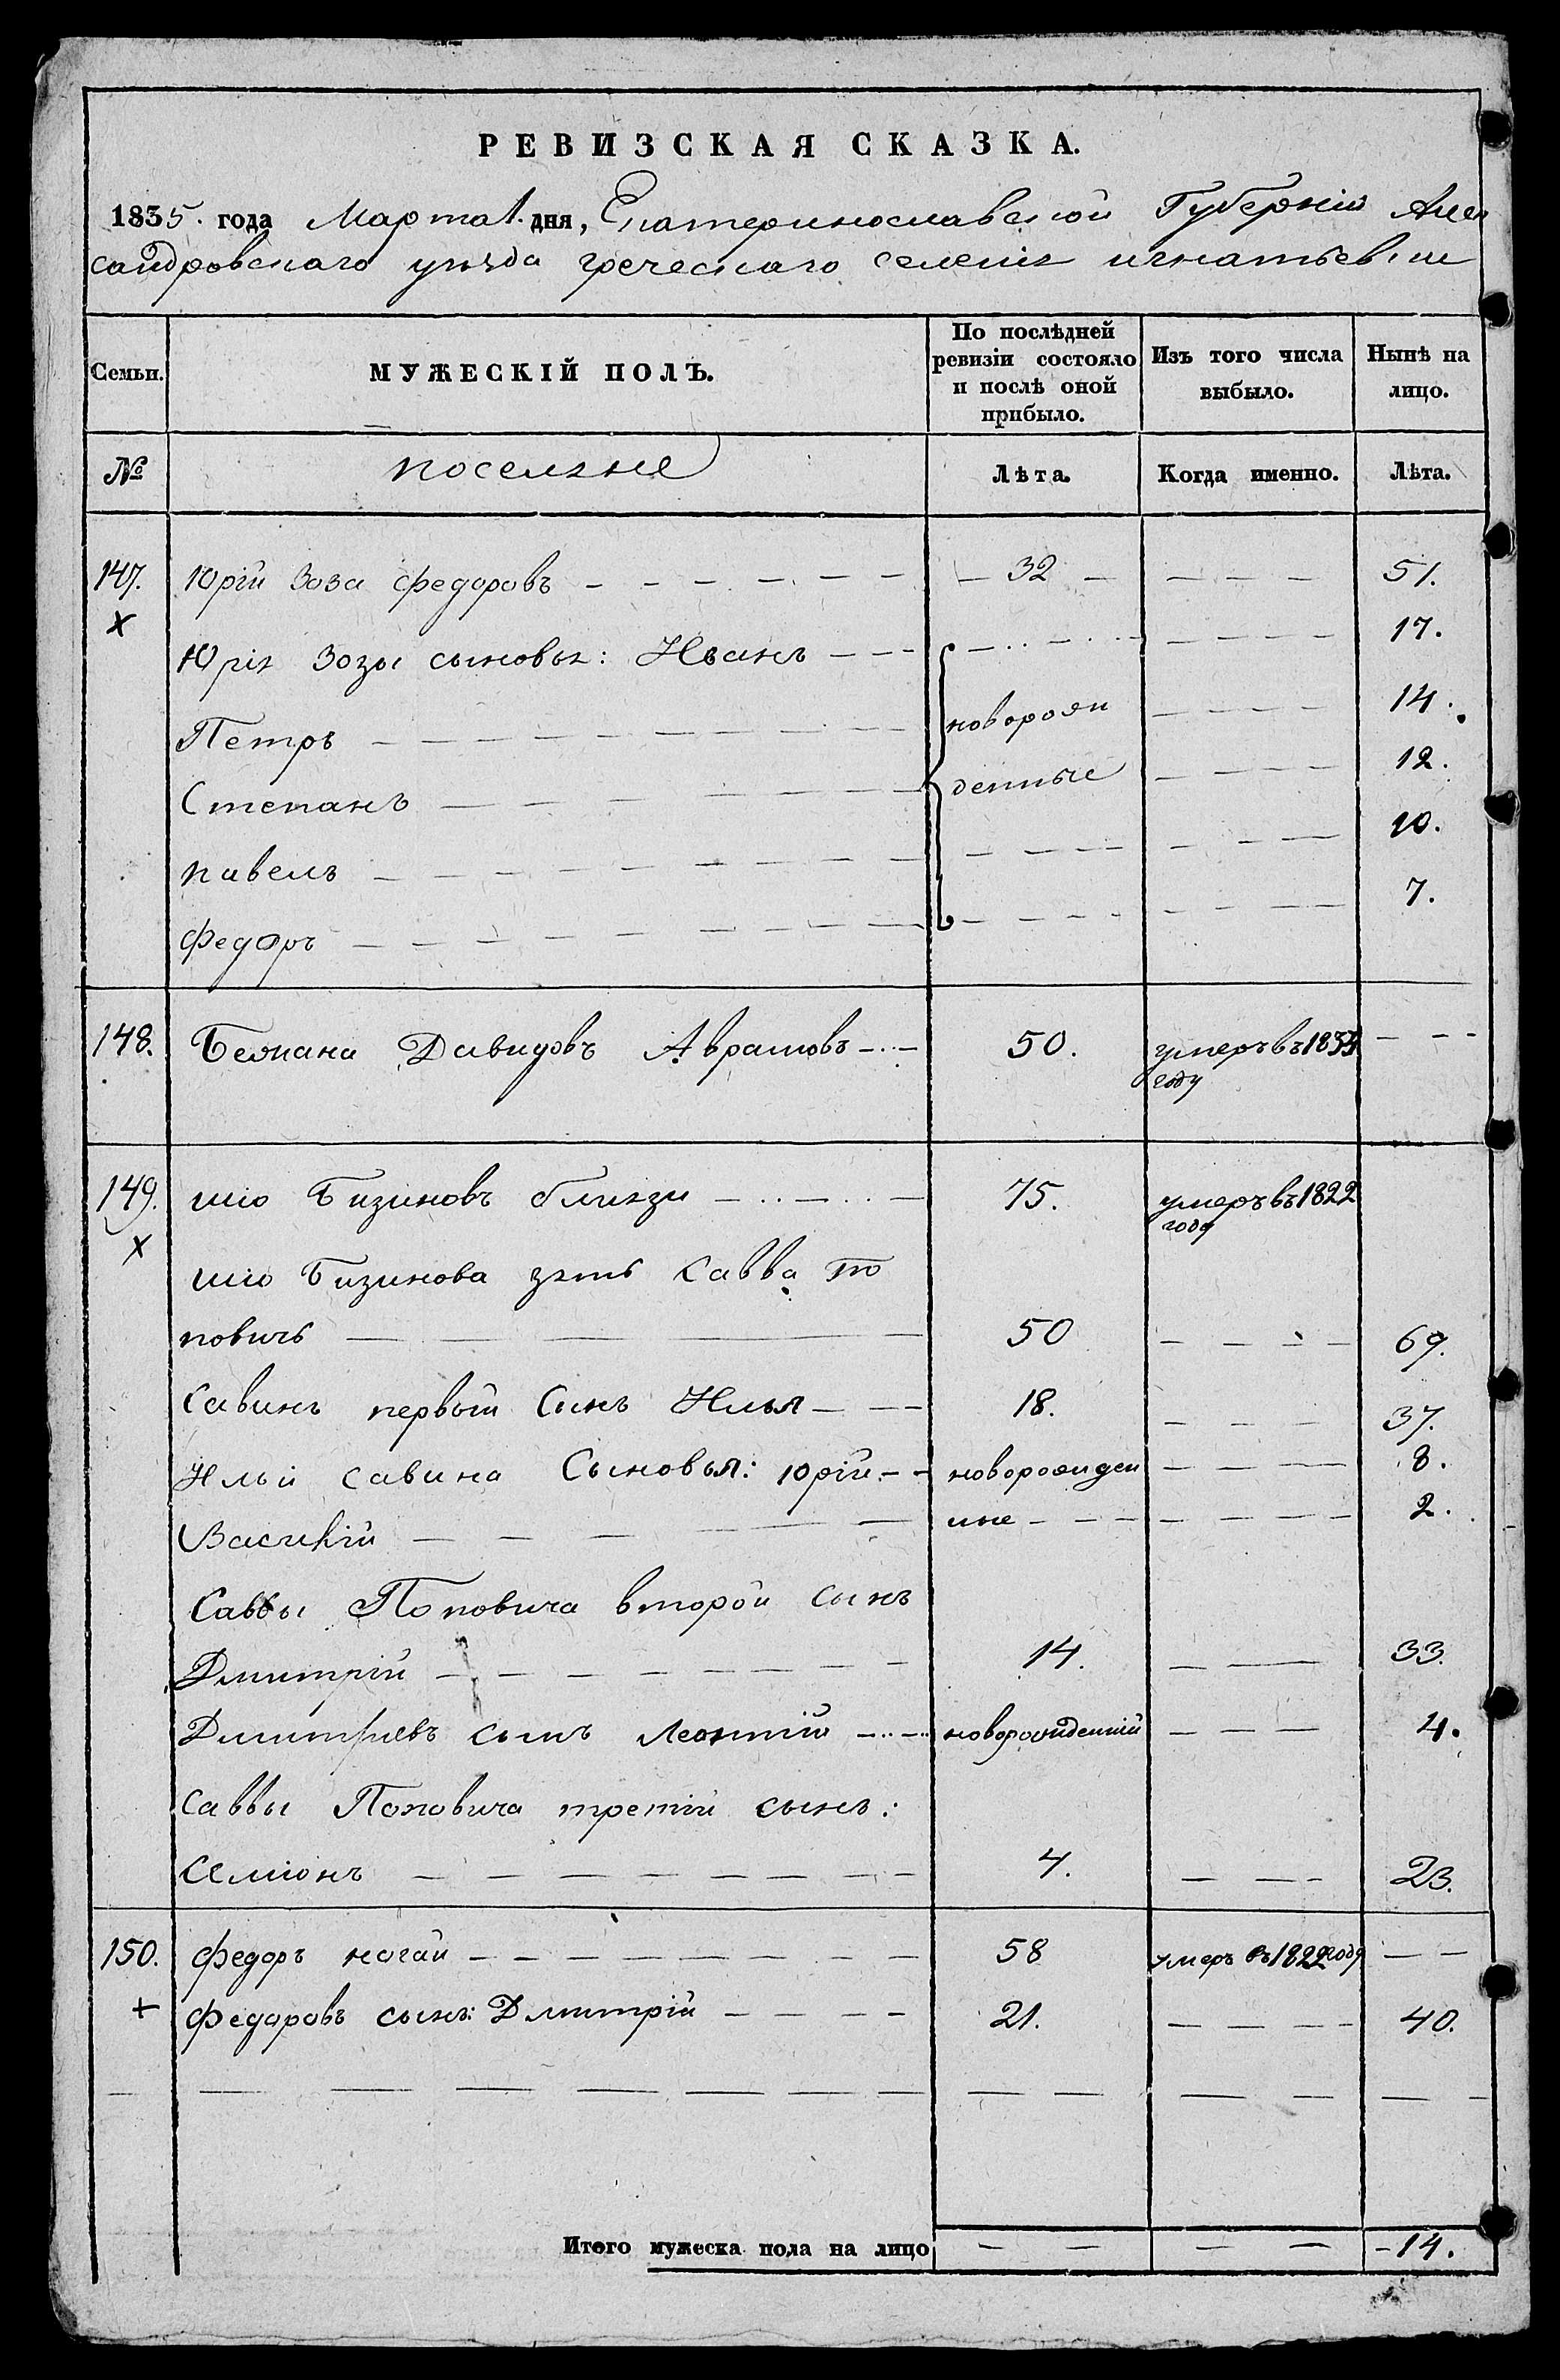 РЕВИЗСКАЯ СКАЗКА.
1835. года Марта 1. дня, Екатеринославской Губернии Алек
сандровскаго уѣзда греческаго селенія игнатьевки
Семьи.
МУЖЕСКІЙ ПОЛЪ.
По послѣдней ревизіи состояло и послѣ оной прибыло.
Изъ того числа выбыло.
Нынѣ на лицо.
№ поселяне Лѣта. Когда именно. Лѣта.
147. Юрій Зоза Федоровъ 32 51.
х Юрія Зозы сыновья: Иванъ 17.
Петръ новорож 14.
Степанъ денные 12.
павелъ 10.
Федоръ 7.
148. Давидовъ Аврамовъ 50. умеръ въ 1834
году
149. шіо Бизиновъ 75. умеръ въ 1822
х году
шіо Бизинова зять Савва По
повичь 50 69.
Савинъ первый Сынъ Илья 18. 37.
Ильи Савина Сыновья: юрій новорожден 8.
Василій ные 2.
Саввы Поповича второй сынъ
Дмитрій 14. 33.
Дмитріевъ сынъ Леонтій новорожденній 4.
Саввы Поповича третій сынъ:
Семіонъ 4. 23.
150. Федоръ ногай 58 умеръ въ 1822 году
+ Федоровъ сынъ: Дмитрій 21. 40.
Итого мужеска пола на лицо 14.